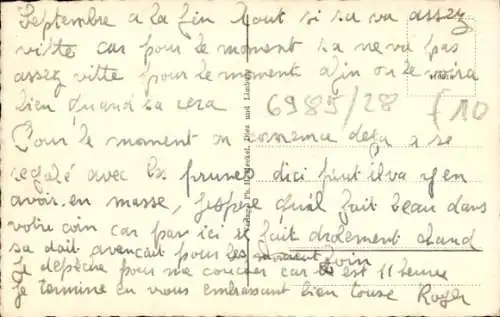 Septembre a la fin tout si sa va assez
vitte car pour le moment sa ne va pas
assez vitte pour le moment afin on le
bien quand sa sera 6985/28 f 10
Pour le moment on comence deja a se
regalé avec les prunes dici peut il va y en
avoir en masse, jespere quàl fait beau dans
votre coin car par ici il fait drolement chaud
sa doit avançait pour les foin
Je depèche pour me coucher car est 11 heure
Je termine en vous embrassant bien tousse Roger
Verlag Ph. H. Diez und Limburg